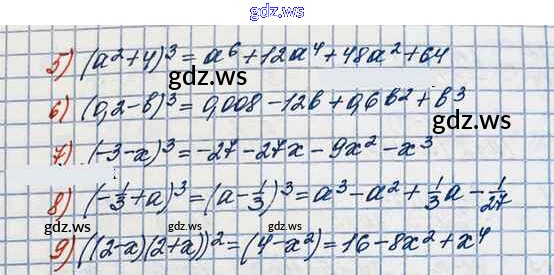 gdz.ws
5) (a²+4)³ = a⁶+12a⁴+48a²+64
gdz.ws gdz.ws
6) (0,2-b)³ = 0,008-12b+0,6b²+b³
gdz.ws
7) (-3-x)³ = -27-27x-9x²-x³
8) (-1/3+a)³ = (a-1/3)³ = a³-a²+1/3a-1/27
gdz.ws gdz.ws gdz.ws
9) ((2-x)(2+x))² = (4-x²) = 16-8x²+x⁴